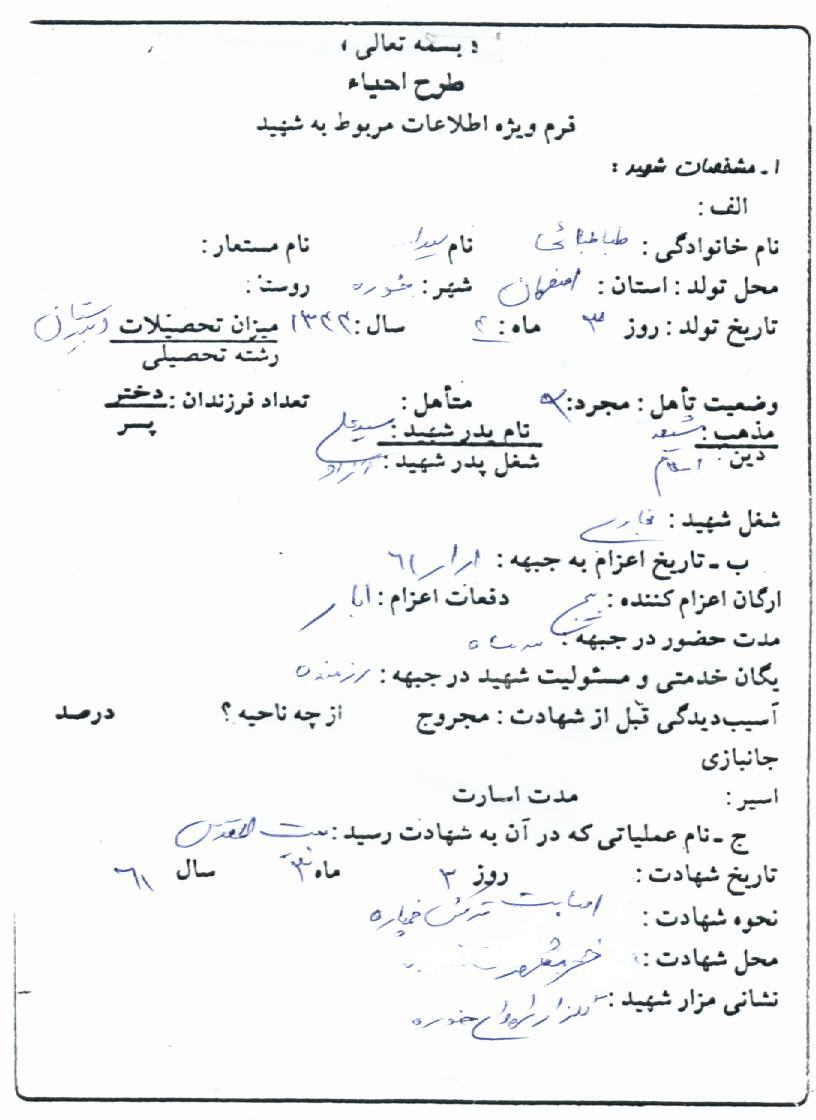 « بسمه تعالی »
طرح احیاء
فرم ویژه اطلاعات مربوط به شهید
۱ـ مشخصات شهید :
الف :
نام خانوادگی : طباطبائی نام نام مستعار :
محل تولد : استان : اصفهان شهر : خوره روستا :
تاریخ تولد : روز ۳ ماه : ۴ سال : ۱۳۴۴ میزان تحصیلات دبیرستان
رشته تحصیلی
وضعیت تأهل : مجرد : متأهل : تعداد فرزندان : دختر
پسر
مذهب : شیعه نام پدر شهید : سیدعلی
دین : اسلام شغل پدر شهید : آزاد
شغل شهید :
ب ـ تاریخ اعزام به جبهه : ۶۱
ارگان اعزام کننده : بسیج دفعات اعزام :
مدت حضور در جبهه : ماه
یگان خدمتی و مسئولیت شهید در جبهه : رزمنده
آسیب‌دیدگی قبل از شهادت : مجروح از چه ناحیه ؟ درصد
جانبازی
اسیر : مدت اسارت
ج ـ نام عملیاتی که در آن به شهادت رسید : بیت المقدس
تاریخ شهادت : روز ۲ ماه ۳ سال ۶۱
نحوه شهادت : اصابت ترکش خمپاره
محل شهادت : خرمشهر
نشانی مزار شهید : گلزار شهدای خوره